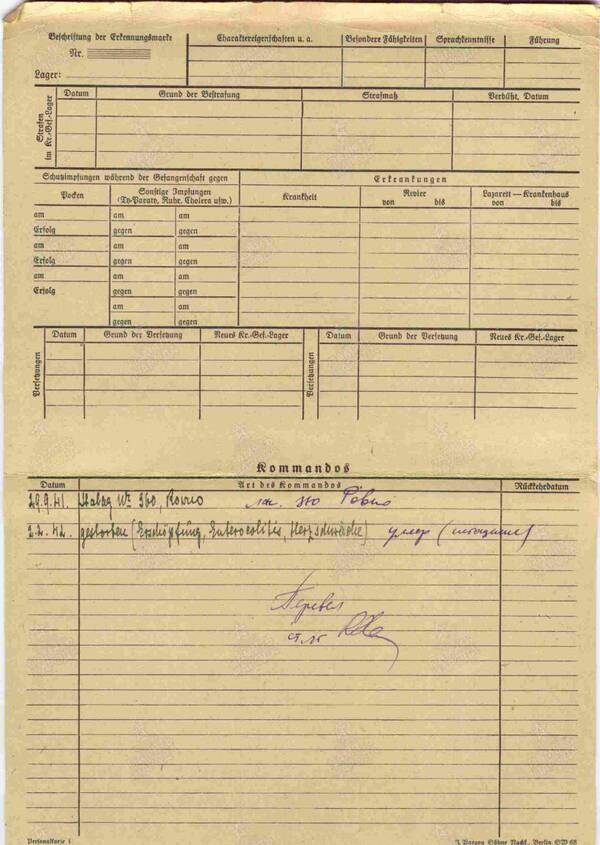 Beschriftung der Erkennungsmarke
Nr.
Lager:
Charaktereigenschaften u. a.
Besondere Fähigkeiten
Sprachkenntnisse
Führung
Strafen im Kr.-Gef.-Lager
Datum
Grund der Bestrafung
Strafmaß
Verbüßt, Datum
Schutzimpfungen während der Gefangenschaft gegen
Erkrankungen
Pocken
Sonstige Impfungen
(Ty-Paraty, Ruhr, Cholera usw.)
Krankheit
Revier
von bis
Lazarett — Krankenhaus
von bis
am am am
Erfolg gegen gegen
am am am
Erfolg gegen gegen
am am am
Erfolg gegen gegen
am am
gegen gegen
Versetzungen
Datum
Grund der Versetzung
Neues Kr.-Gef.-Lager
Versetzungen
Datum
Grund der Versetzung
Neues Kr.-Gef.-Lager
Kommandos
Datum
Art des Kommandos
Rückkehrdatum
29.9.41. Stalag № 360, Rovno 360 Ровно
2.2.42. gestorben (Erschöpfung, Enterocolitis, Herzschwäche) умер (истощение)
Перевел
Personalkarte I
Söhne Nachf., Berlin SW 68